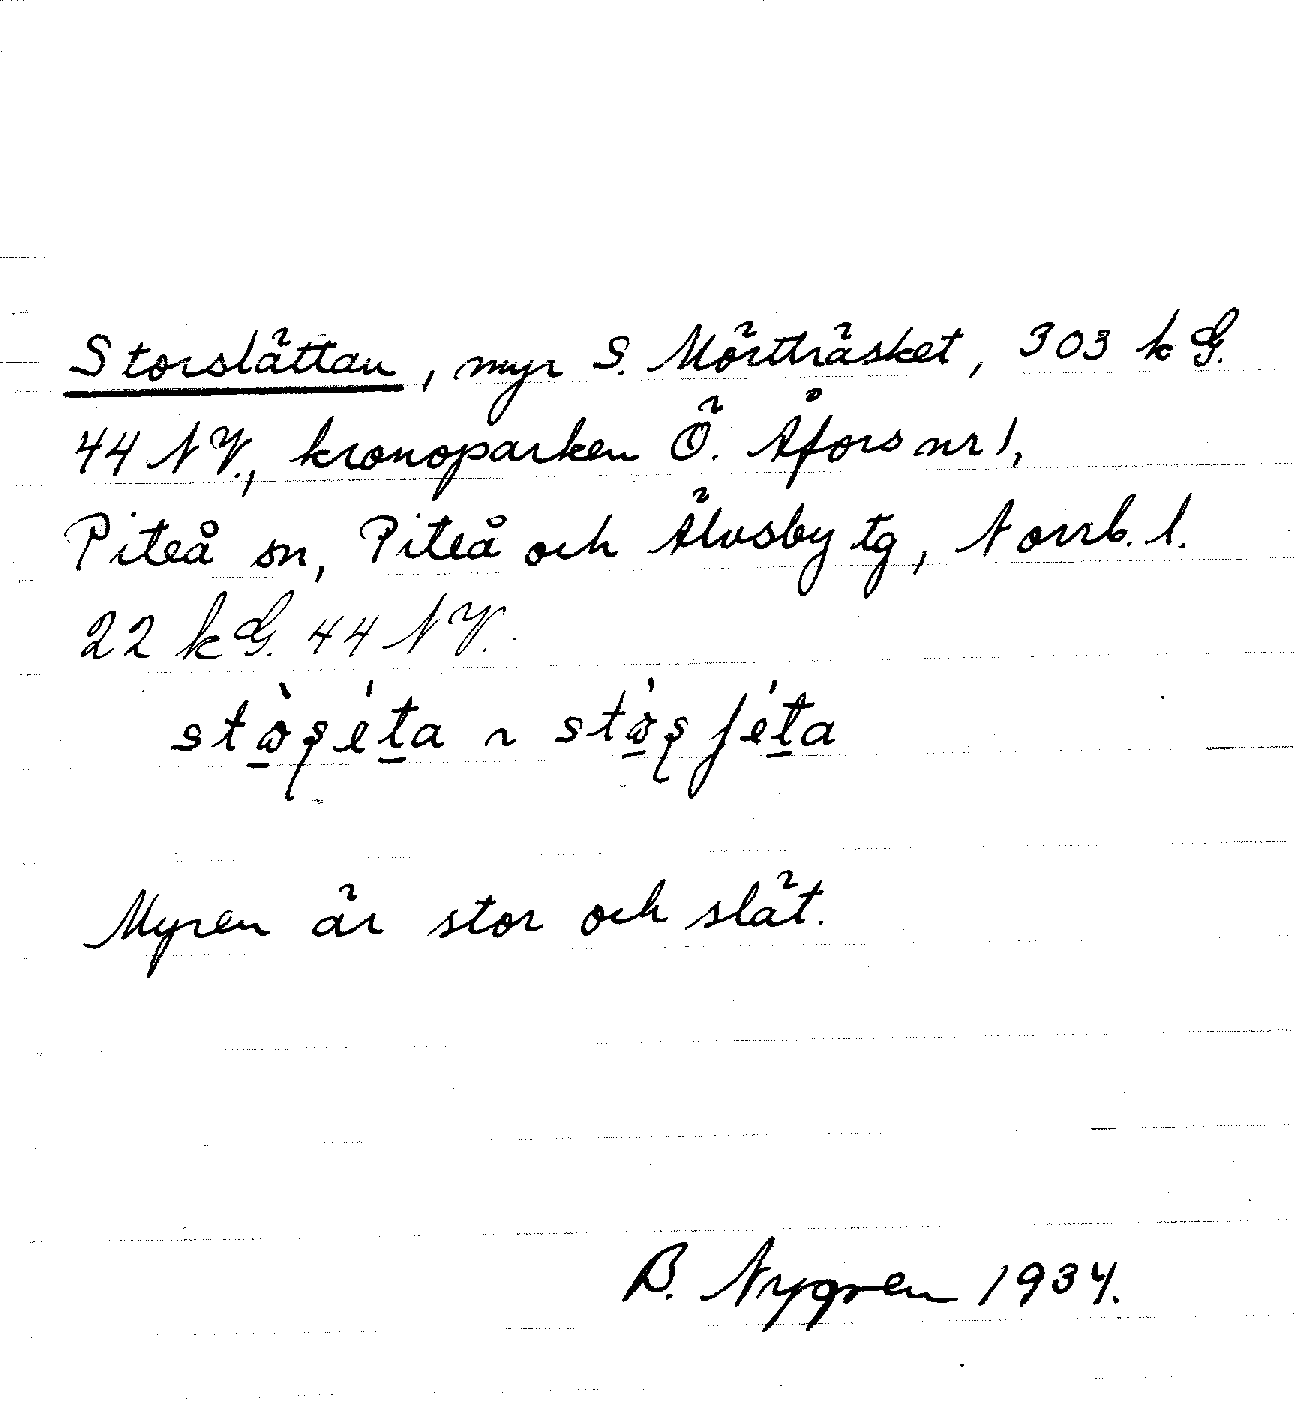 Storslättan, myr S. Mörtträsket, 303 k G.
44 NV., kronoparken Ö. Åfors nr 1,
Piteå sn, Piteå och Älvsby tg, Norrb. l.
22 k G. 44 NV.
Myren är stor och slät.
B. Nygren 1934.